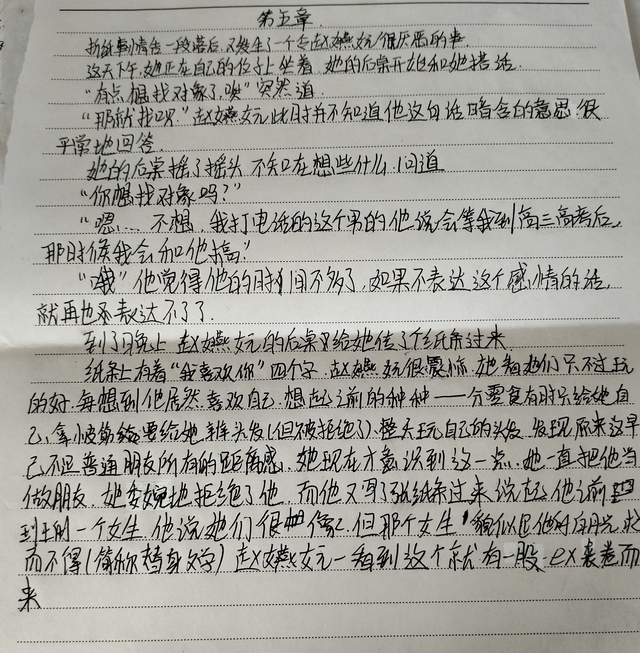 第五章
折纸事情告一段落后,又发生了一个令赵嬿妧很厌恶的事.
这天下午,她正在自己的位子上坐着,她的后桌开始和她搭话.
"有点想找对象了,唉"突然道
"那就找呗."赵嬿妧此时并不知道他这句话暗含的意思.很
平常地回答.
她的后桌摇了摇头,不知在想些什么,问道
"你想找对象吗?"
"嗯....不想,我打电话的这个男的他说会等我到高三高考后,
那时候我会和他搞."
"哦"他觉得他的时间不多了,如果不表达这个感情的话,
就再也表达不了了.
到了晚上,赵嬿妧的后桌又给她传了个纸条过来
纸条上有着"我喜欢你"四个字,赵嬿妧很震惊,她和他们只不过玩
的好,每想到他居然喜欢自己,想起之前的种种——分零食有时只给她自
己,拿小皮筋要给她辫头发(但被拒绝了),整天玩自己的头发,发现原来这早
已不是普通朋友所有的距离感,她现在才意识到这一点,她一直把他当
做朋友,她委婉地拒绝了他,而他又写了张纸条过来,说起他之前
到的一个女生,他说她们很像,但那个女生貌似是他的白月光,求
而不得(简称替身文学)赵嬿妧一看到这个就有一股ex袭卷而
来